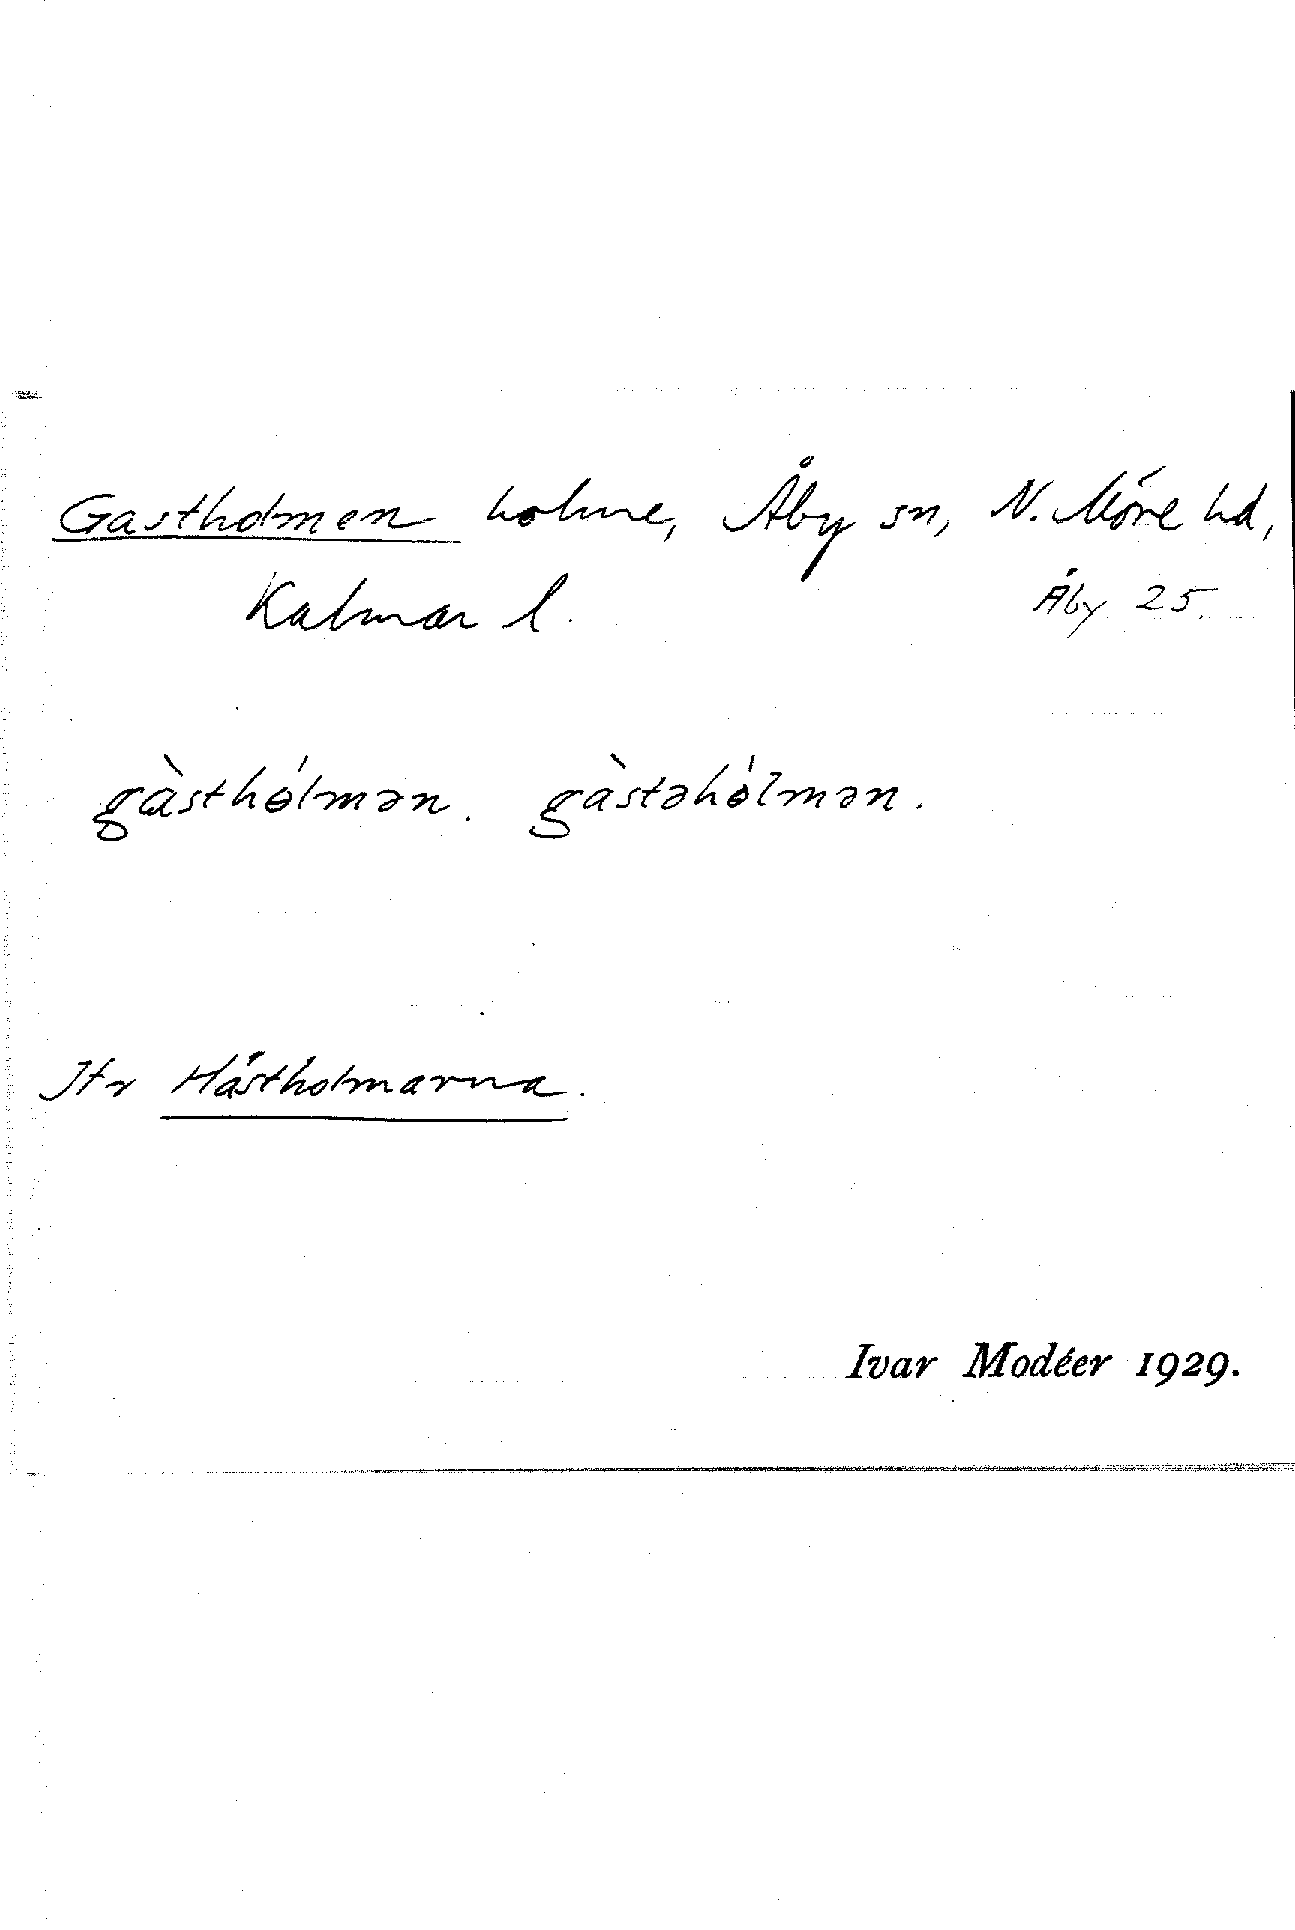 Gastholmen holme, Åby sn, N. Möre hd,
Kalmar l.
Åby 25.
gàsthólmən. gàstəhólmən.
Jfr Hästholmarna.
Ivar Modéer 1929.